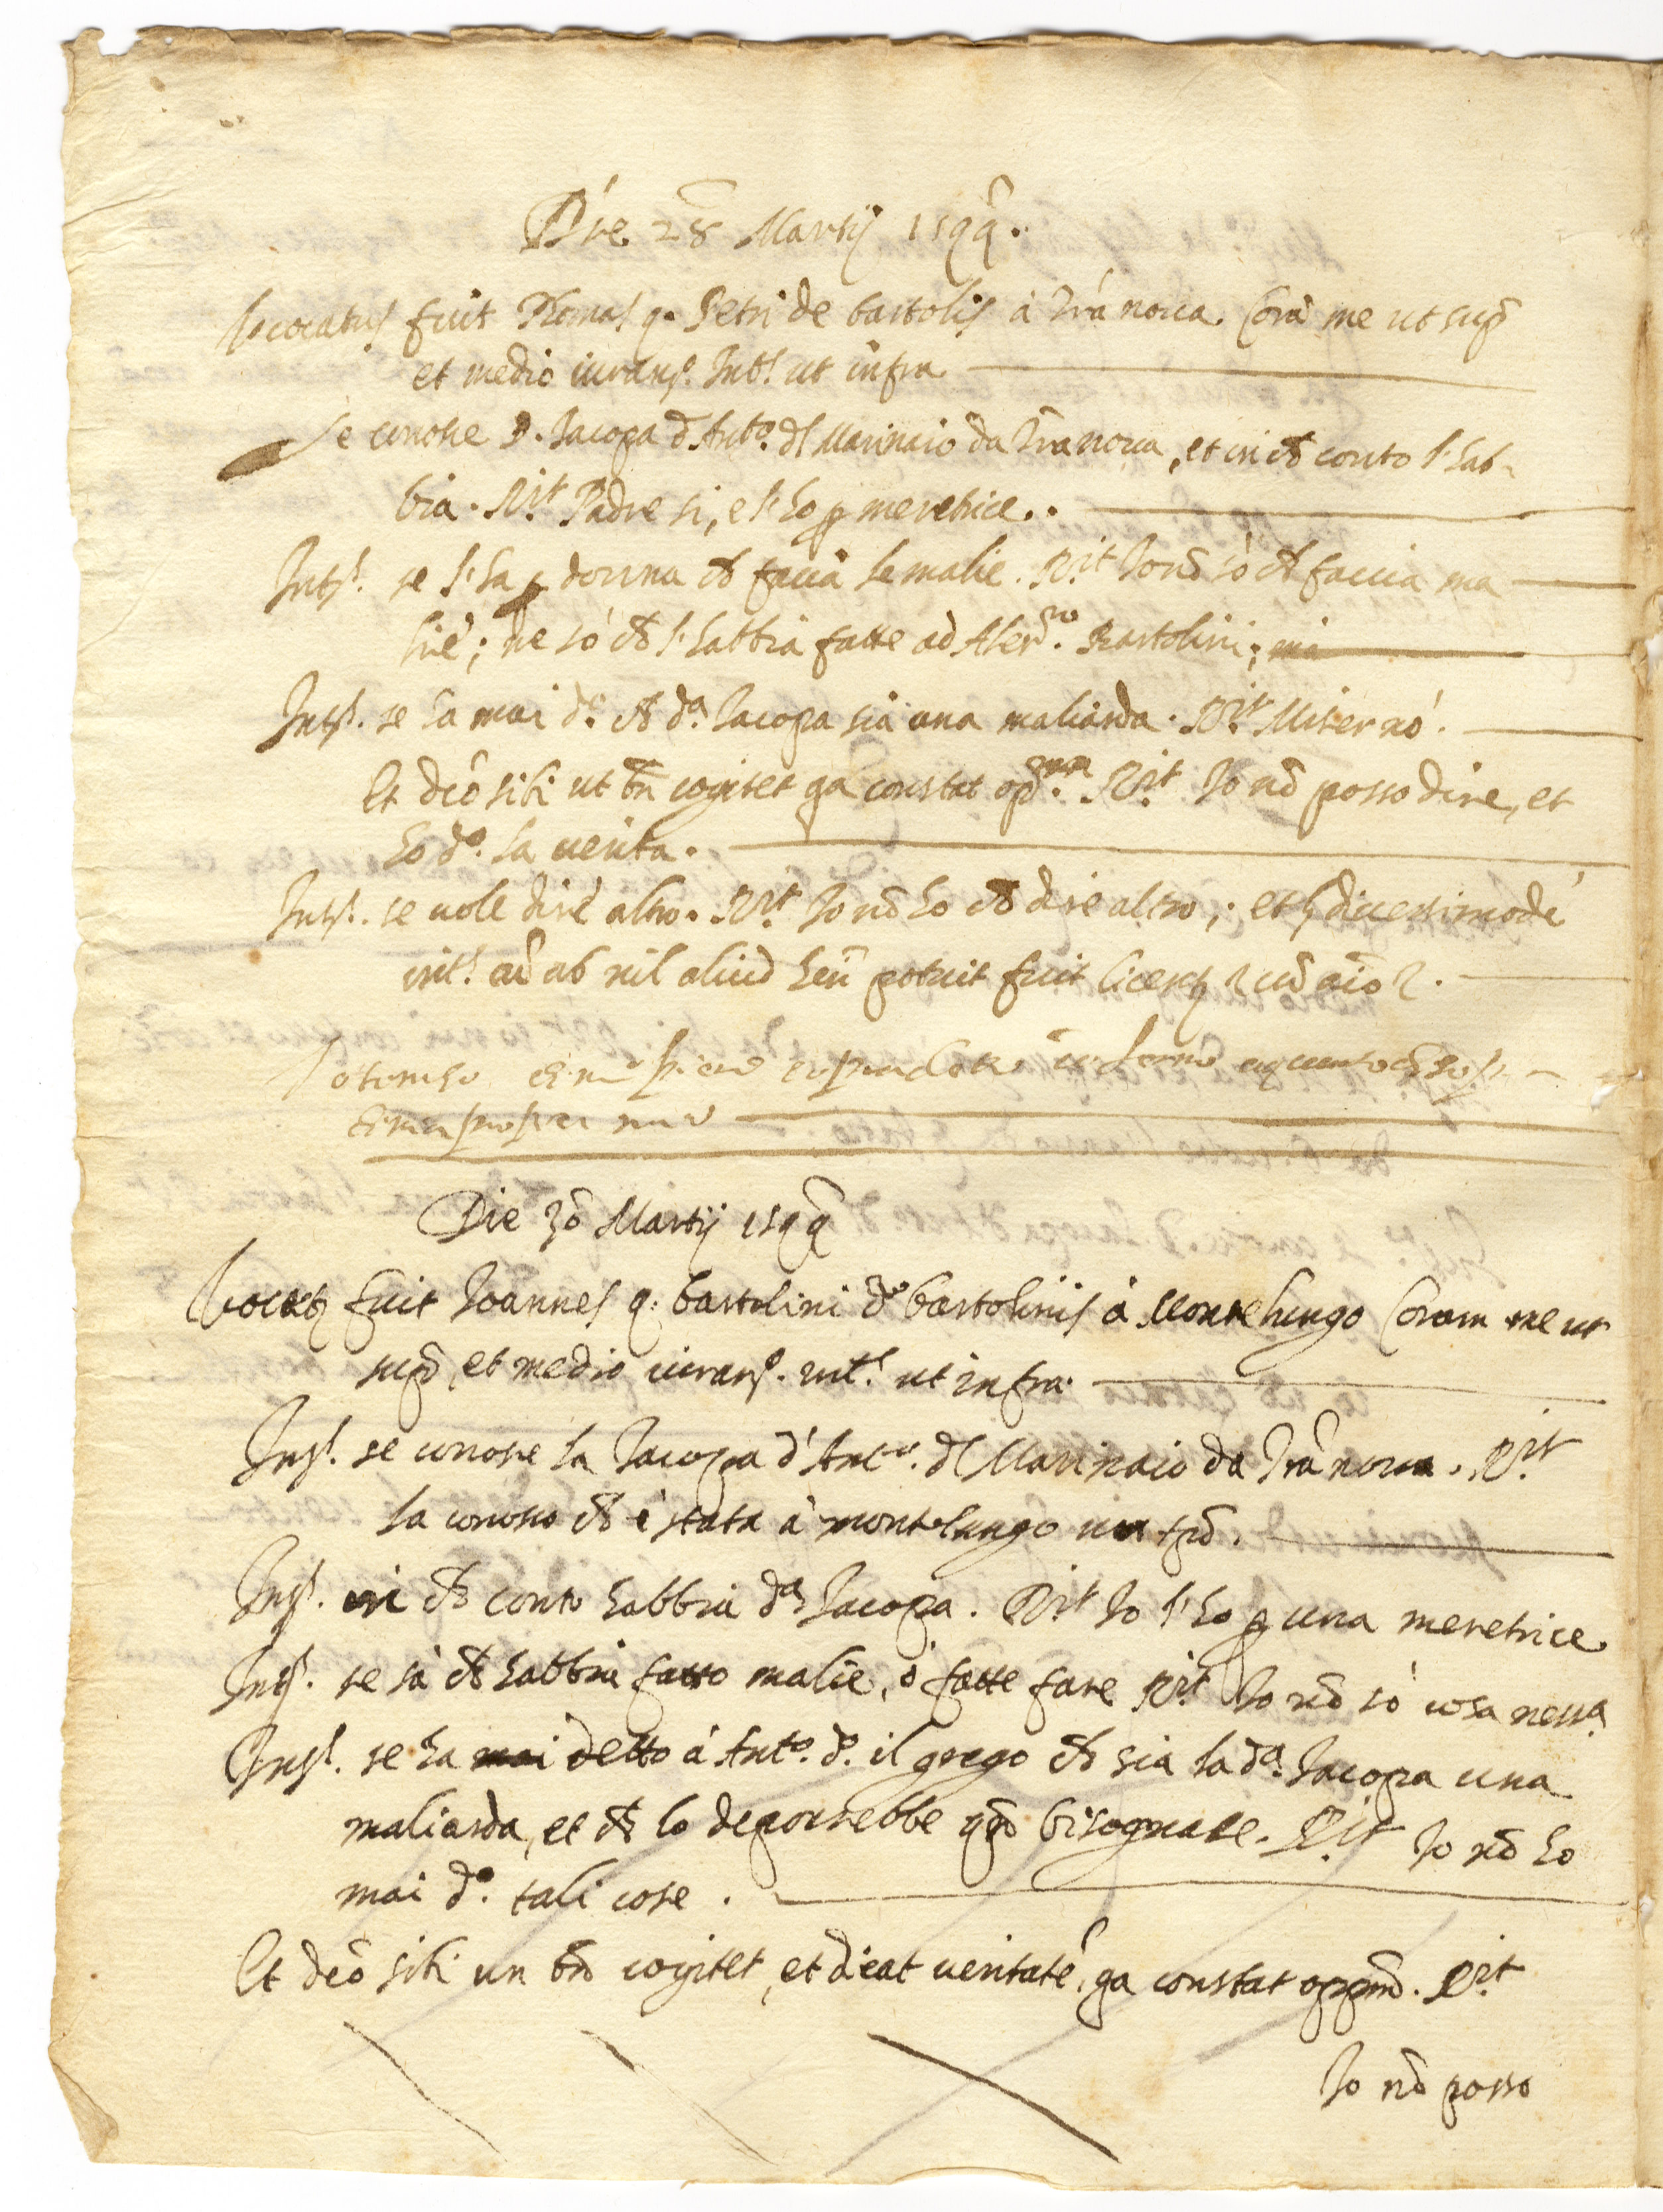 Die 28 Martij 1599.
Vocatus fuit Thomas q. Petri de bartolis à Trà noua. Corā me ut supᵃ
et medio iuram.ᵗᵒ Int.ˢ ut infra
Se conosce D. Iacopa d'Ant.º dl Marinaio da Trà noua, et in chē conto l'hab-
bia. R.ᵗ Padre si, e l'ho p meretrice.
Int.ˢ se l'ha p donna chē faccia le malie. R.ᵗ Io nō sò chē faccia ma
lie; ne sò chē l'habbia fatte ad Aless.ʳᵒ Bartolini;
Int.ˢ se ha mai d.º chē d.ª Iacopa sia una maliarda. R.ᵗ Miser nò.
Et dcō sibi ut bn̄ cogitet qa constat R.ᵗ Io nō posso dire, et
ho d.º la uerita.
Int.ˢ se uole dire altro. R.ᵗ Io nō ho chē dire altro; et diuersimode
int.ˢ ab nil aliud potuit fuit
Die 30 Martij 1599
Vocatus fuit Ioannes q. bartolini de bartolinis à Montelungo Coram me ut
supᵃ, et medio iuram.ᵗᵒ int.ˢ ut infra.
Int.ˢ se conosce la Iacopa d'Ant.º dl Marinaio da Trà noua. R.ᵗ
la conosco chē è stata à montelungo un tpō.
Int.ˢ in chē conto habbia d.ª Iacopa. R.ᵗ Io l'ho p una meretrice
Int.ˢ se sà chē habbia fatto malie, ò fatte fare R.ᵗ Io nō sò cosa ness.ª
Int.ˢ se ha mai detto à Ant.º d.º il grego chē sia la d.ª Iacopa una
maliarda, et chē lo deporrebbe qn̄ bisognasse. R.ᵗ Io nō ho
mai d.º tali cose.
Et dcō sibi un bn̄ cogitet, et dicat ueritatē, qa constat oppm̄. R.ᵗ
Io nō posso